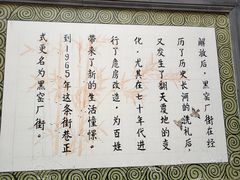 解放后，黑窑厂街在经
历了历史长河的洗礼后，
又发生了翻天覆地的变
化，尤其在七十年代进
行了危房改造，为百姓
带来了新的生活憧憬。
到1965年这条街巷正
式更名为黑窑厂街。